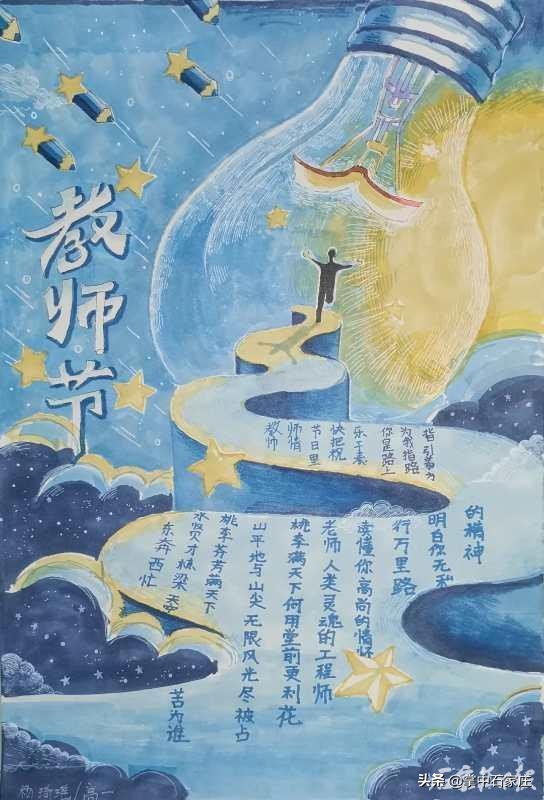 教师节
指引着
为我指路
你是路上
快把祝
节日里
师情
教师
的精神
明白你无私
行万里路
读懂你高尚的情怀
老师人类灵魂的工程师
桃李满天下何用堂前更利花
山平地与山尖无限风光尽被占
桃李芬芳满天下
贤才栋梁
东奔西忙
苦为谁
/高一
头条 @掌中石家庄